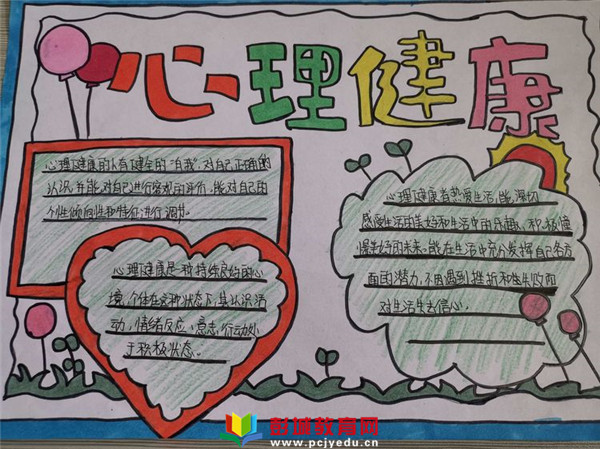 心理健康
心理健康的人有健全的“自我”,对自己正确的
认识,并能对自己进行客观的评价,能对自己的
个性倾向性和特征进行调节。
心理健康是一种持续良好的心
境,个体在这种状态下,其认识活
动,情绪反应、意志,行动处
于积极状态。
心理健康者热爱生活,能深切
感受生活的美好和生活中的乐趣,积极憧
憬美好的未来。能在生活中充分发挥自己各方
面的潜力,不因遇到挫折和失败而
对生活失去信心。
彭城教育网
www.pcjyedu.cn